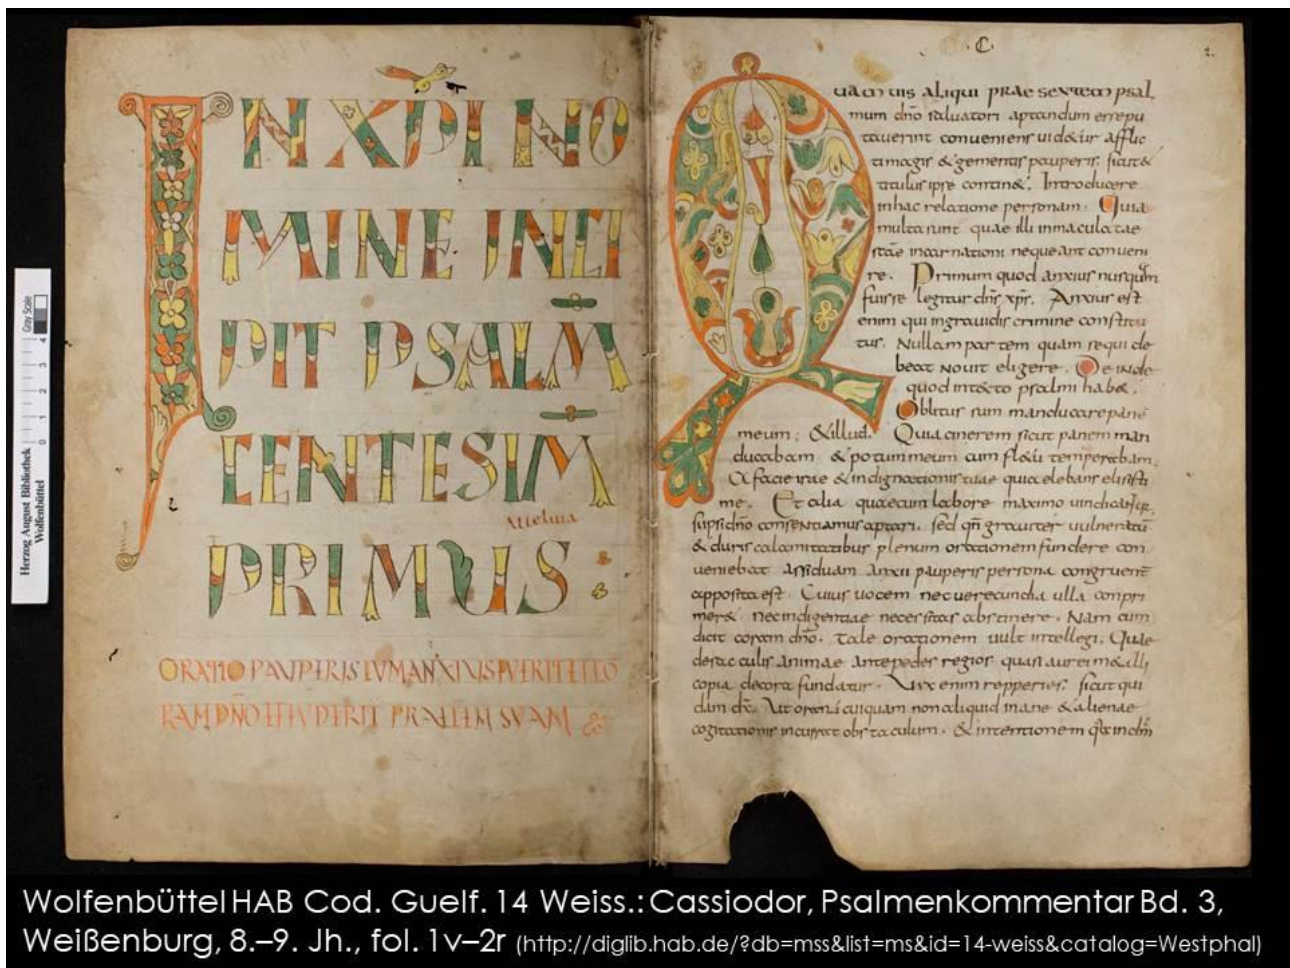 IN XPI NO
MINE INCI
PIT PSALM̅
CENTESIM̅
Alleluia
PRIMUS
ORATIO PAUPERIS CUM ANXIUS FUERIT ET CO
RAM DN̅O EFFUDERIT PRAECEM SUAM
C
2.
Quamuis aliqui prae sextem psal
mum dn̅o saluatori aptandum errepu
tauerint conueniens uid&ur afflic
ti magis & gementis pauperis. sicut &
titulus ipse contin&. Introducere
in hac relatione personam. Quia
multa sunt quae illi inmaculatae
incarnationi nequeant conueni
re. Primum quod anxius nusquam
fuisse legitur dn̅s xp̅s. Anxius est
enim qui ingrauidis crimine constitu
tus. Nullam partem quam sequi de
beat nouit eligere. Deinde
quod in psalmi hab&.
Oblitus sum manducare pane
meum. & illud. Quia cinerem sicut panem man
ducabam & potum meum cum fl&u temperabam.
A facie irae & indignationis tuae quia elebans elisisti
me. Et alia quae cum labore maximo uindicatur,
si ipsi dn̅o consentiamus aptari. sed qn̅ grauiter uulneratu̅
& duris calamitatibus plenum orationem fundere con
ueniebat assiduam anxii pauperis persona congruent
apposita est. Cuius uocem nec uerecundia ulla conpri
mer& nec indigentiae necessitas abstinere. Nam cum
dicit coram dn̅o. tale orationem uult intellegi. Quae
de animae ante pedes regios quasi aurei m&alli
copia decora fundatur. Vix enim repperies. sicut qui
dam dic̅. Ut oranti cuiquam non aliquid inane & alienae
cogitationis incurrat obstaculum. & intentionem
Herzog August Bibliothek
Wolfenbüttel
0 1 2 3 4
Gray Scale
Wolfenbüttel HAB Cod. Guelf. 14 Weiss.: Cassiodor, Psalmenkommentar Bd. 3,
Weißenburg, 8.–9. Jh., fol. 1v–2r (http://diglib.hab.de/?db=mss&list=ms&id=14-weiss&catalog=Westphal)